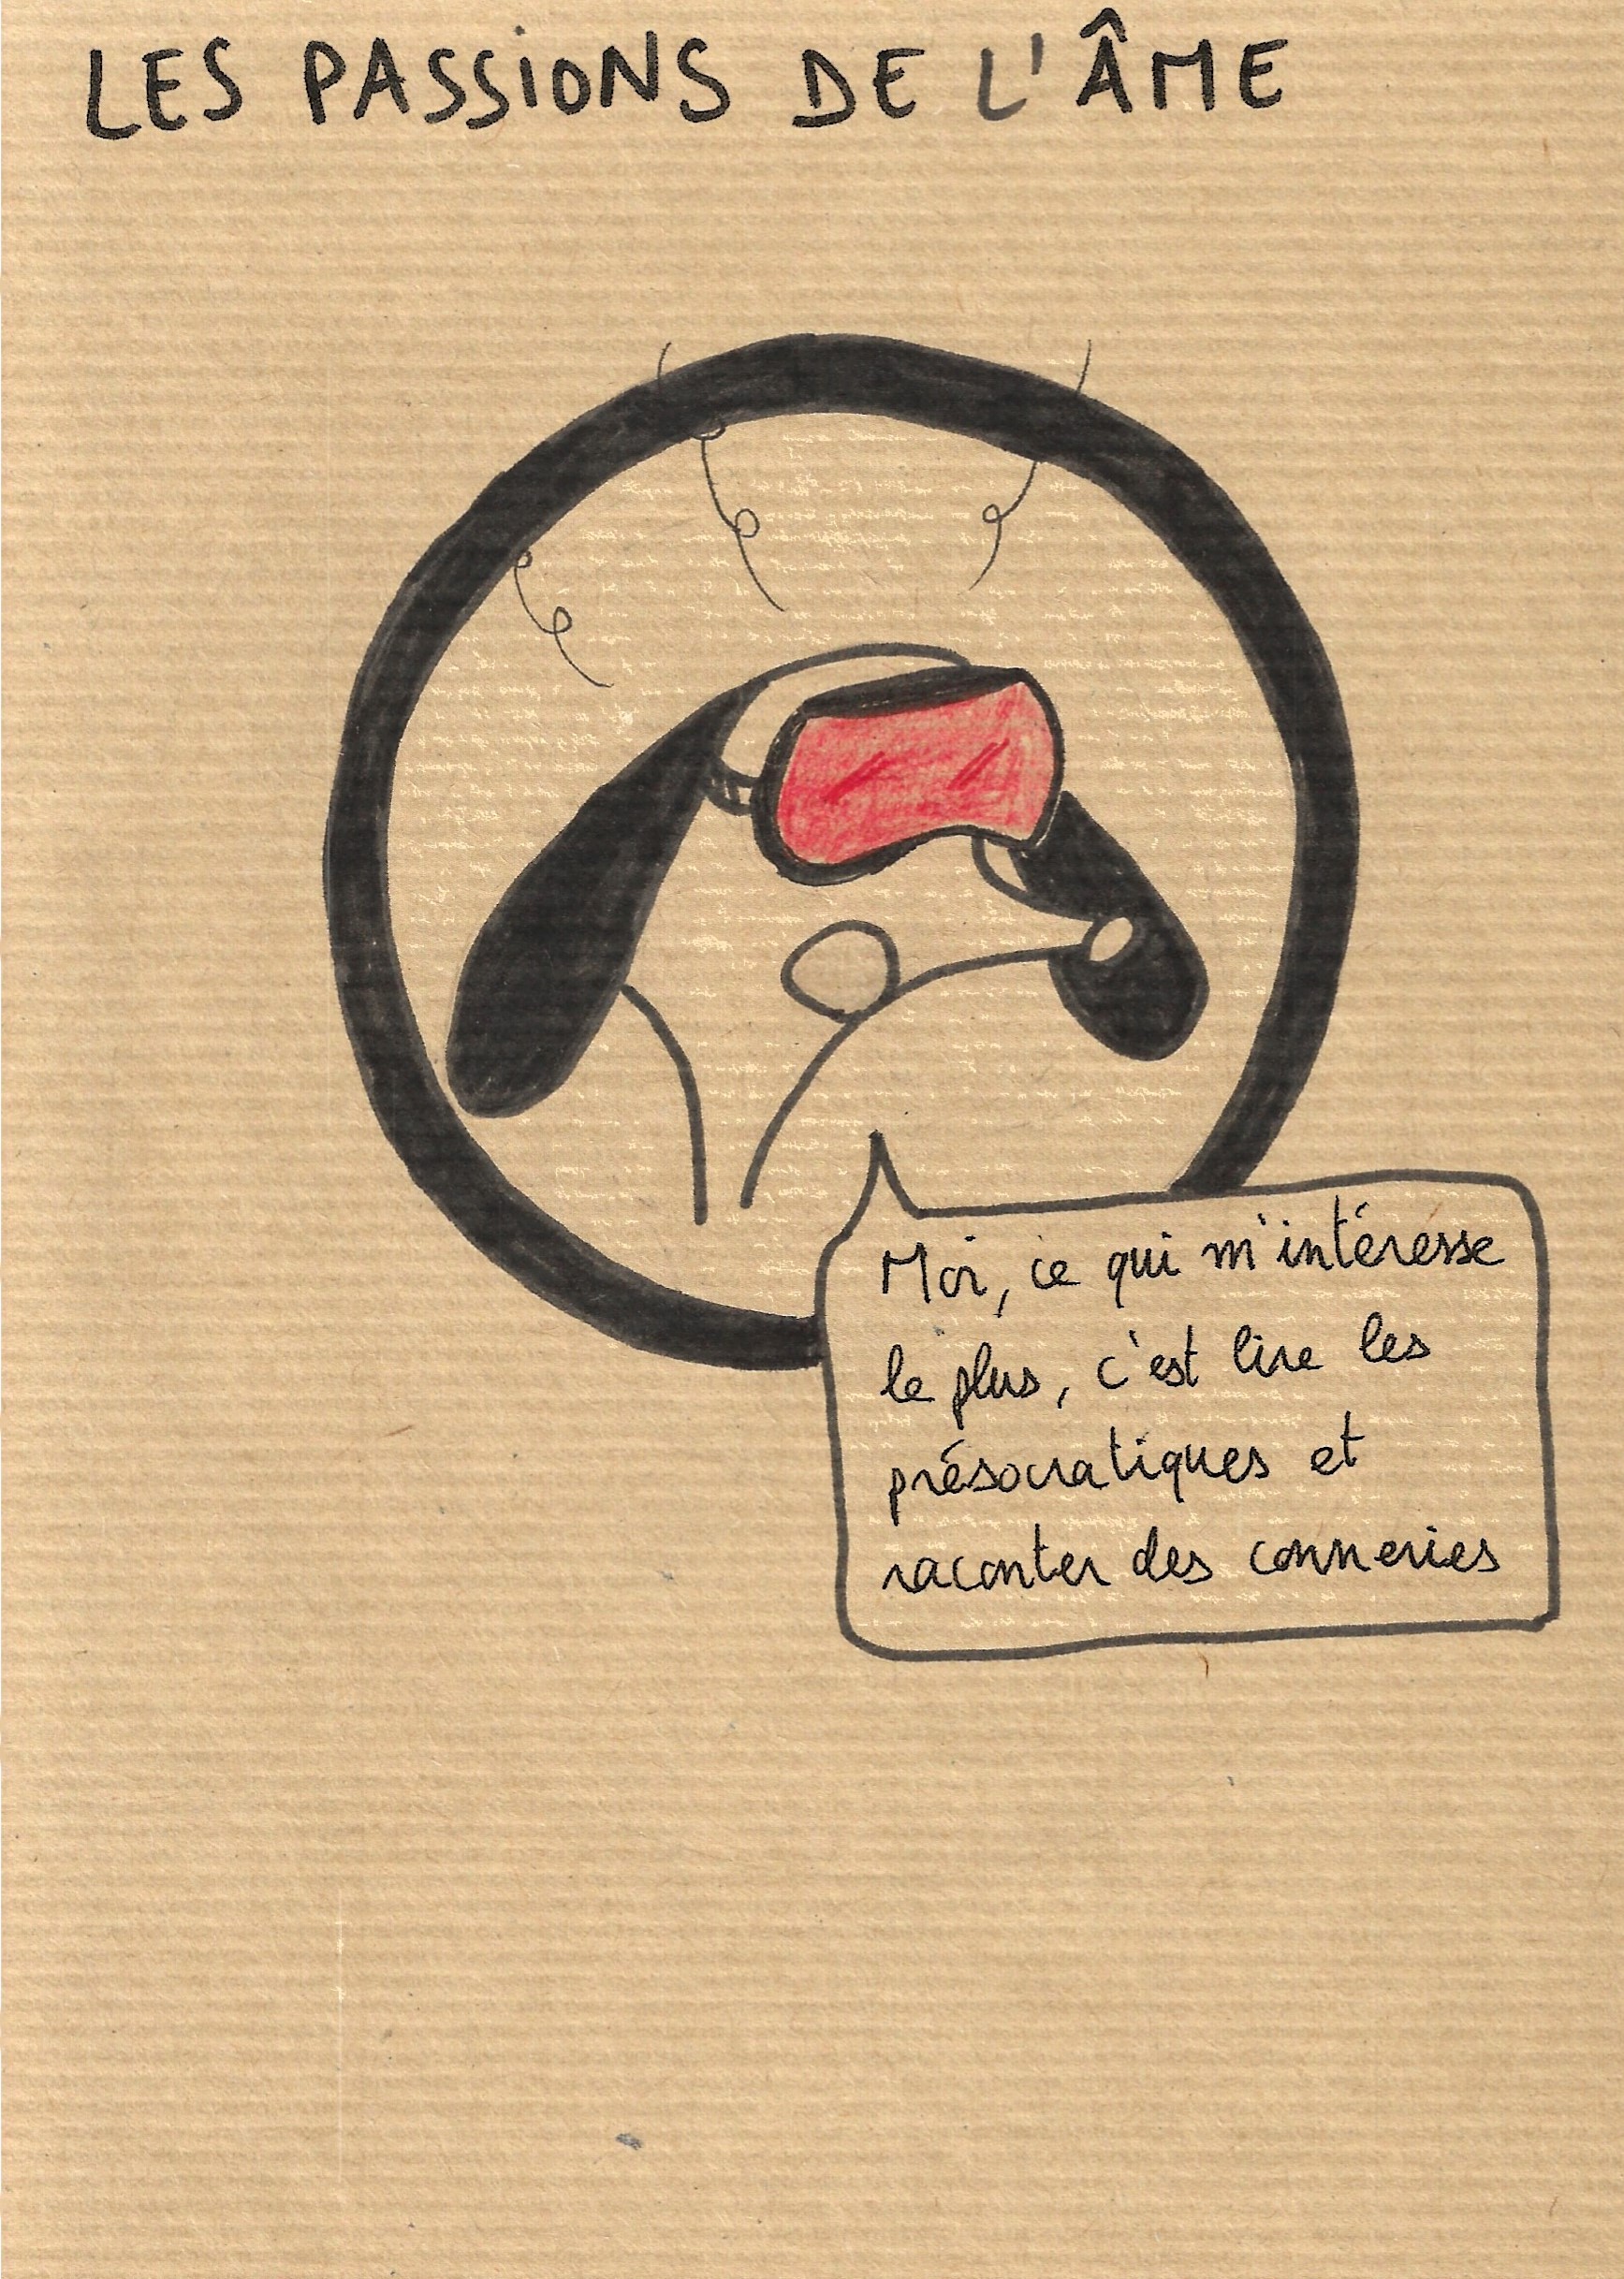 LES PASSIONS DE L'ÂME
Moi, ce qui m'intéresse
le plus, c'est lire les
présocratiques et
raconter des conneries